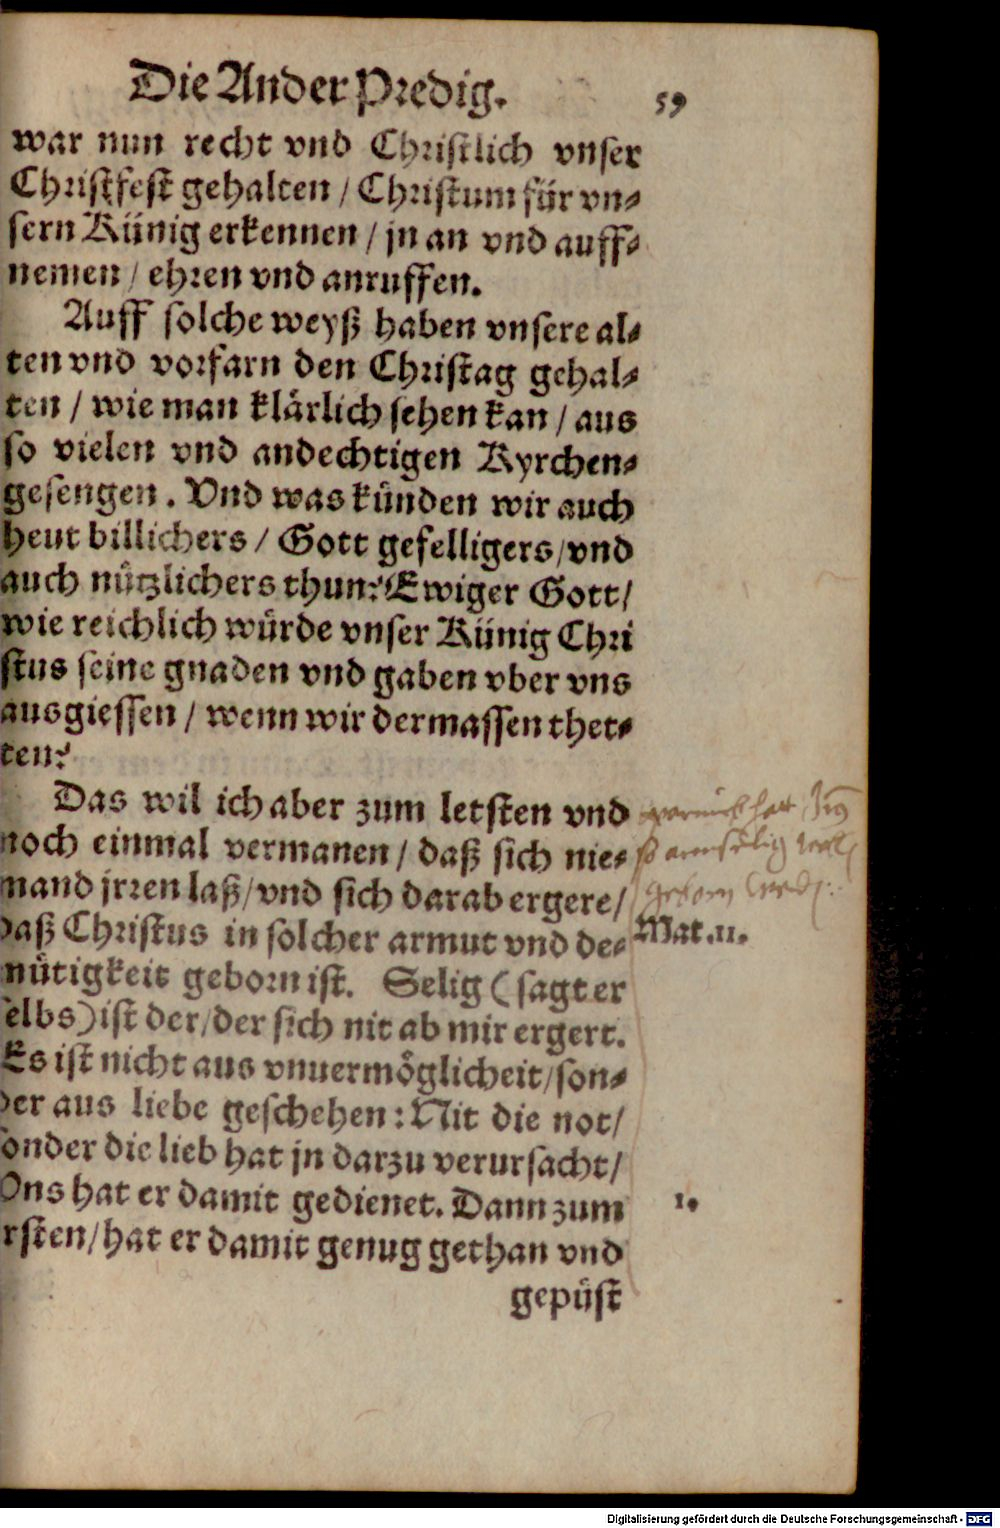 Die Ander Predig. 59
war nun recht vnd Christlich vnser
Christfest gehalten / Christum für vn⸗
sern Künig erkennen / jn an vnd auff⸗
nemen / ehren vnd anruffen.
Auff solche weyß haben vnsere al⸗
ten vnd vorfarn den Christag gehal⸗
ten / wie man klärlich sehen kan / aus
so vielen vnd andechtigen Kyrchen⸗
gesengen. Vnd was künden wir auch
heut billichers / Gott gefelligers / vnd
auch nützlichers thun? Ewiger Gott /
wie reichlich würde vnser Künig Chri
stus seine gnaden vnd gaben vber vns
ausgiessen / wenn wir dermassen thet⸗
ten?
Das wil ich aber zum letsten vnd
noch einmal vermanen / daß sich nie⸗
mand jrren laß / vnd sich darab ergere /
daß Christus in solcher armut vnd de⸗
mütigkeit geborn ist. Selig (sagt er
selbs) ist der / der sich nit ab mir ergert.
Es ist nicht aus vnuermöglicheit / son⸗
der aus liebe geschehen: Nit die not /
sonder die lieb hat jn darzu verursacht /
Vns hat er damit gedienet. Dann zum
ersten / hat er damit genug gethan vnd
gepüst
armselig
geborn
Mat.11.
1.
Digitalisierung gefördert durch die Deutsche Forschungsgemeinschaft - DFG